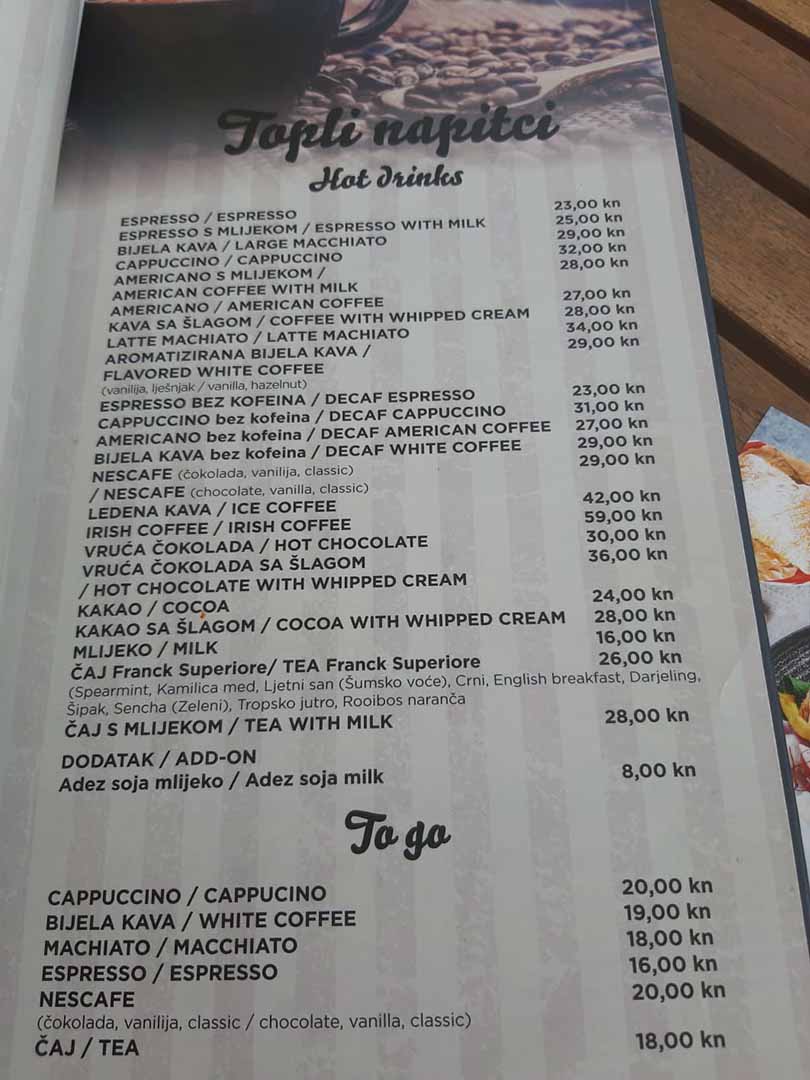 Topli napitci
Hot drinks
ESPRESSO / ESPRESSO 23,00 kn
ESPRESSO S MLIJEKOM / ESPRESSO WITH MILK 25,00 kn
BIJELA KAVA / LARGE MACCHIATO 29,00 kn
CAPPUCCINO / CAPPUCCINO 32,00 kn
AMERICANO S MLIJEKOM / 28,00 kn
AMERICAN COFFEE WITH MILK
AMERICANO / AMERICAN COFFEE 27,00 kn
KAVA SA ŠLAGOM / COFFEE WITH WHIPPED CREAM 28,00 kn
LATTE MACHIATO / LATTE MACHIATO 34,00 kn
AROMATIZIRANA BIJELA KAVA / 29,00 kn
FLAVORED WHITE COFFEE
(vanilija, lješnjak / vanilla, hazelnut)
ESPRESSO BEZ KOFEINA / DECAF ESPRESSO 23,00 kn
CAPPUCCINO bez kofeina / DECAF CAPPUCCINO 31,00 kn
AMERICANO bez kofeina / DECAF AMERICAN COFFEE 27,00 kn
BIJELA KAVA bez kofeina / DECAF WHITE COFFEE 29,00 kn
NESCAFE (čokolada, vanilija, classic) 29,00 kn
/ NESCAFE (chocolate, vanilla, classic)
LEDENA KAVA / ICE COFFEE 42,00 kn
IRISH COFFEE / IRISH COFFEE 59,00 kn
VRUĆA ČOKOLADA / HOT CHOCOLATE 30,00 kn
VRUĆA ČOKOLADA SA ŠLAGOM 36,00 kn
/ HOT CHOCOLATE WITH WHIPPED CREAM
KAKAO / COCOA 24,00 kn
KAKAO SA ŠLAGOM / COCOA WITH WHIPPED CREAM 28,00 kn
MLIJEKO / MILK 16,00 kn
ČAJ Franck Superiore/ TEA Franck Superiore 26,00 kn
(Spearmint, Kamilica med, Ljetni san (Šumsko voće), Crni, English breakfast, Darjeling,
Šipak, Sencha (Zeleni), Tropsko jutro, Rooibos naranča)
ČAJ S MLIJEKOM / TEA WITH MILK 28,00 kn
DODATAK / ADD-ON
Adez soja mlijeko / Adez soja milk 8,00 kn
To go
CAPPUCCINO / CAPPUCINO 20,00 kn
BIJELA KAVA / WHITE COFFEE 19,00 kn
MACHIATO / MACCHIATO 18,00 kn
ESPRESSO / ESPRESSO 16,00 kn
NESCAFE 20,00 kn
(čokolada, vanilija, classic / chocolate, vanilla, classic)
ČAJ / TEA 18,00 kn